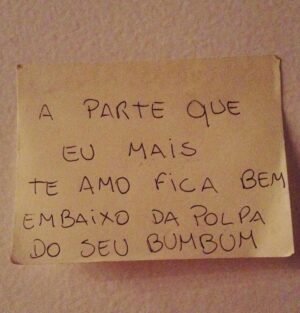 A PARTE QUE
EU MAIS
TE AMO FICA BEM
EMBAIXO DA POLPA
DO SEU BUMBUM